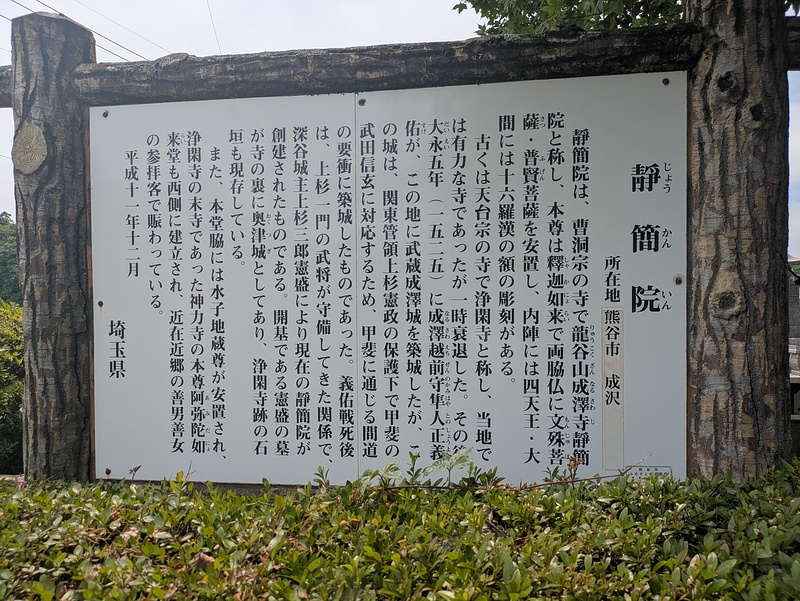 靜簡院
じょうかんいん
所在地 熊谷市 成沢
靜簡院は、曹洞宗の寺で龍谷山成澤寺靜簡
院と称し、本尊は釋迦如来で両脇仏に文殊菩
薩・普賢菩薩を安置し、内陣には四天王・大
間には十六羅漢の額の彫刻がある。
古くは天台宗の寺で浄閑寺と称し、当地で
は有力な寺であったが一時衰退した。その後
大永五年（一五二五）に成澤越前守隼人正義
佑が、この地に武蔵成澤城を築城したが、こ
の城は、関東管領上杉憲政の保護下で甲斐の
武田信玄に対応するため、甲斐に通じる間道
の要衝に築城したものであった。義佑戦死後
は、上杉一門の武将が守備してきた関係で、
深谷城主上杉三郎憲盛により現在の靜簡院が
創建されたものである。開基である憲盛の墓
が寺の裏に奥津城としてあり、浄閑寺跡の石
垣も現存している。
また、本堂脇には水子地蔵尊が安置され、
浄閑寺の末寺であった神力寺の本尊阿弥陀如
来堂も西側に建立され、近在近郷の善男善女
の参拝客で賑わっている。
平成十一年十二月
埼玉県